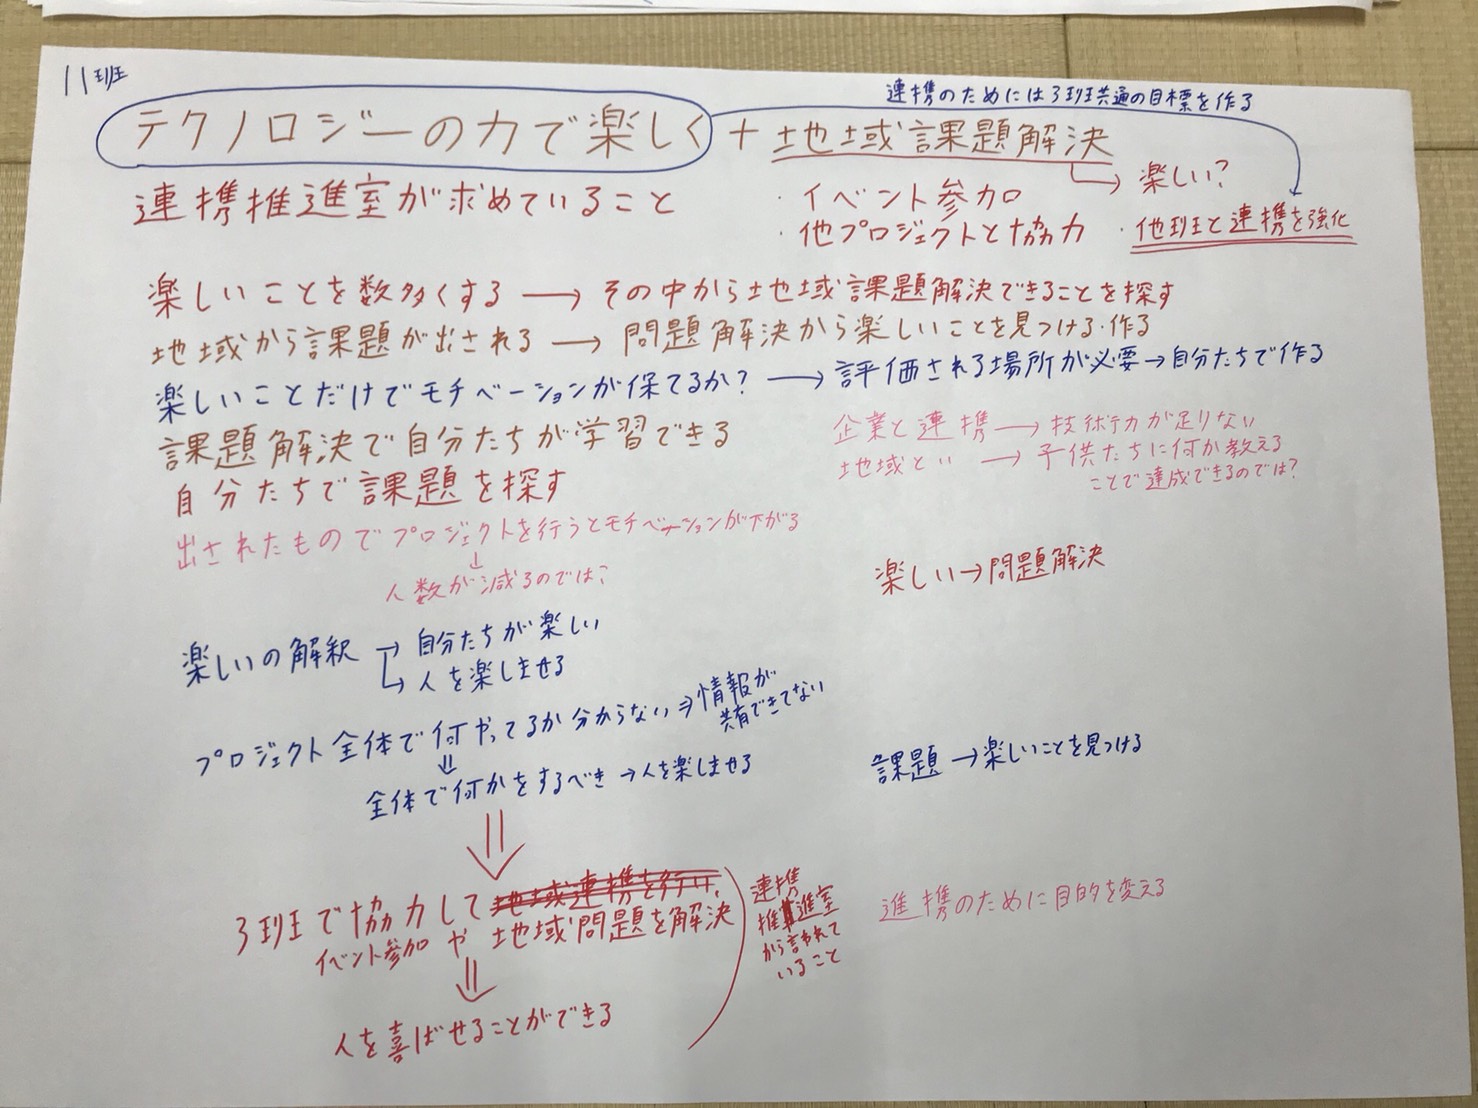 11班
連携のためには3班共通の目標を作る
テクノロジーの力で楽しく + 地域課題解決
→ 楽しい?
連携推進室が求めていること
・イベント参加
・他プロジェクトと協力 ・他班と連携を強化
楽しいことを数多くする → その中から地域課題解決できることを探す
地域から課題が出される → 問題解決から楽しいことを見つける・作る
楽しいことだけでモチベーションが保てるか? → 評価される場所が必要→自分たちで作る
課題解決で自分たちが学習できる
企業と連携 → 技術力が足りない
地域と〃 → 子供たちに何か教える
ことで達成できるのでは?
自分たちで課題を探す
出されたものでプロジェクトを行うとモチベーションが下がる
↓
人数が減るのでは?
楽しい→問題解決
楽しいの解釈 → 自分たちが楽しい
→ 人を楽しませる
プロジェクト全体で何やってるか分からない⇒情報が
共有できてない
⇓
全体で何かをするべき→人を楽しませる
課題→楽しいことを見つける
⇓
3班で協力して地域連携を行い、
イベント参加や地域問題を解決
連携
推進室
から言われて
いること
進携のために目的を変える
⇓
人を喜ばせることができる